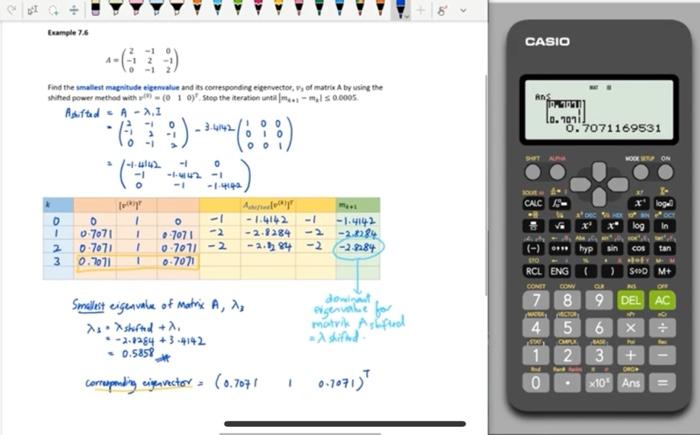 Example 7.6
A = ( 2 -1 0
-1 2 -1
0 -1 2 )
Find the smallest magnitude eigenvalue and its corresponding eigenvector, v₃ of matrix A by using the
shifted power method with v⁽⁰⁾ = (0 1 0)ᵀ. Stop the iteration until |mₖ₊₁ − mₖ| ≤ 0.0005.
Ashifted = A - λ₁I
= ( 2 -1 0
-1 2 -1
0 -1 2 ) - 3.4142 ( 1 0 0
0 1 0
0 0 1 )
= ( -1.4142 -1 0
-1 -1.4142 -1
0 -1 -1.4142 )
k [v⁽ᵏ⁾]ᵀ Ashifted[v⁽ᵏ⁾]ᵀ mₖ₊₁
0 0 1 0 -1 -1.4142 -1 -1.4142
1 0.7071 1 0.7071 -2 -2.8284 -2 -2.8284
2 0.7071 1 0.7071 -2 -2.8284 -2 -2.8284
3 0.7071 1 0.7071
Smallest eigenvalue of Matrix A, λ₃
λ₃ = λshifted + λ₁
= -2.8284 + 3.4142
= 0.5858
dominant
eigenvalue for
matrix Ashifted
= λshifted.
corresponding eigenvector = (0.7071 1 0.7071)ᵀ
CASIO
Ans
0.7071169531
SHIFT ALPHA MODE SETUP ON
CALC
log
ln
(-) hyp sin cos tan
STO
RCL ENG ( ) S⇔D M+
CONST CONV CLR INS OFF
7 8 9 DEL AC
MATRIX VECTOR
4 5 6 × ÷
STAT CMPLX BASE
1 2 3 + −
0 . ×10ˣ Ans =